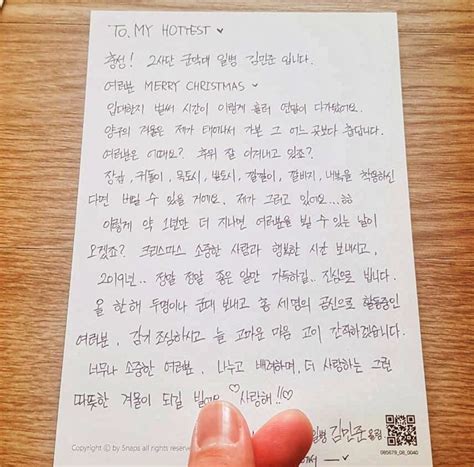 TO. MY HOTTEST ♥
충성! 2사단 군악대 일병 김민준 입니다.
여러분 MERRY CHRISTMAS ♥
입대한지 벌써 시간이 이렇게 흘러 연말이 다가왔어요.
양구의 겨울은 제가 태어나서 가본 그 어느 곳보다 춥답니다.
여러분은 어때요? 추위 잘 이겨내고 있죠?
장갑, 귀돌이, 목토시, 발토시, 깔깔이, 깔바지, 내복을 착용하신
다면 버틸 수 있을 거에요. 제가 그러고 있어요...ㅎㅎ
이렇게 약 1년만 더 지나면 여러분을 뵐 수 있는 날이
오겠죠? 크리스마스 소중한 사람과 행복한 시간 보내시고,
2019년.. 정말 정말 좋은 일만 가득하길.. 진심으로 빕니다.
올 한해 두명이나 군대 보내고 총 세명의 곰신으로 활동중인
여러분, 감기 조심하시고 늘 고마운 마음 고이 간직하겠습니다.
너무나 소중한 여러분, 나누고 배려하며, 더 사랑하는 그런
따뜻한 겨울이 되길 사랑해!!♡
일병 김민준 올림
Copyright ⓒ by Snaps all rights reserve
085679_08_0040